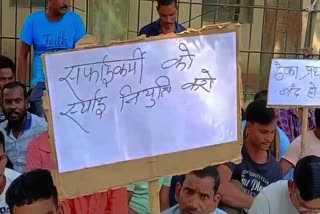 Faith
सफाईकर्मी को
स्थाई नियुक्ति करो
ठेका प्रथा
बंद हो